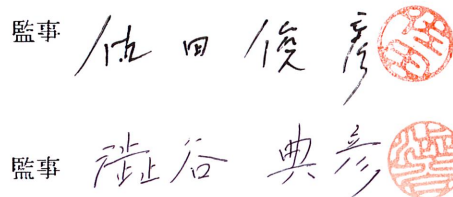 監事 佐田俊彦
監事 澁谷典彦